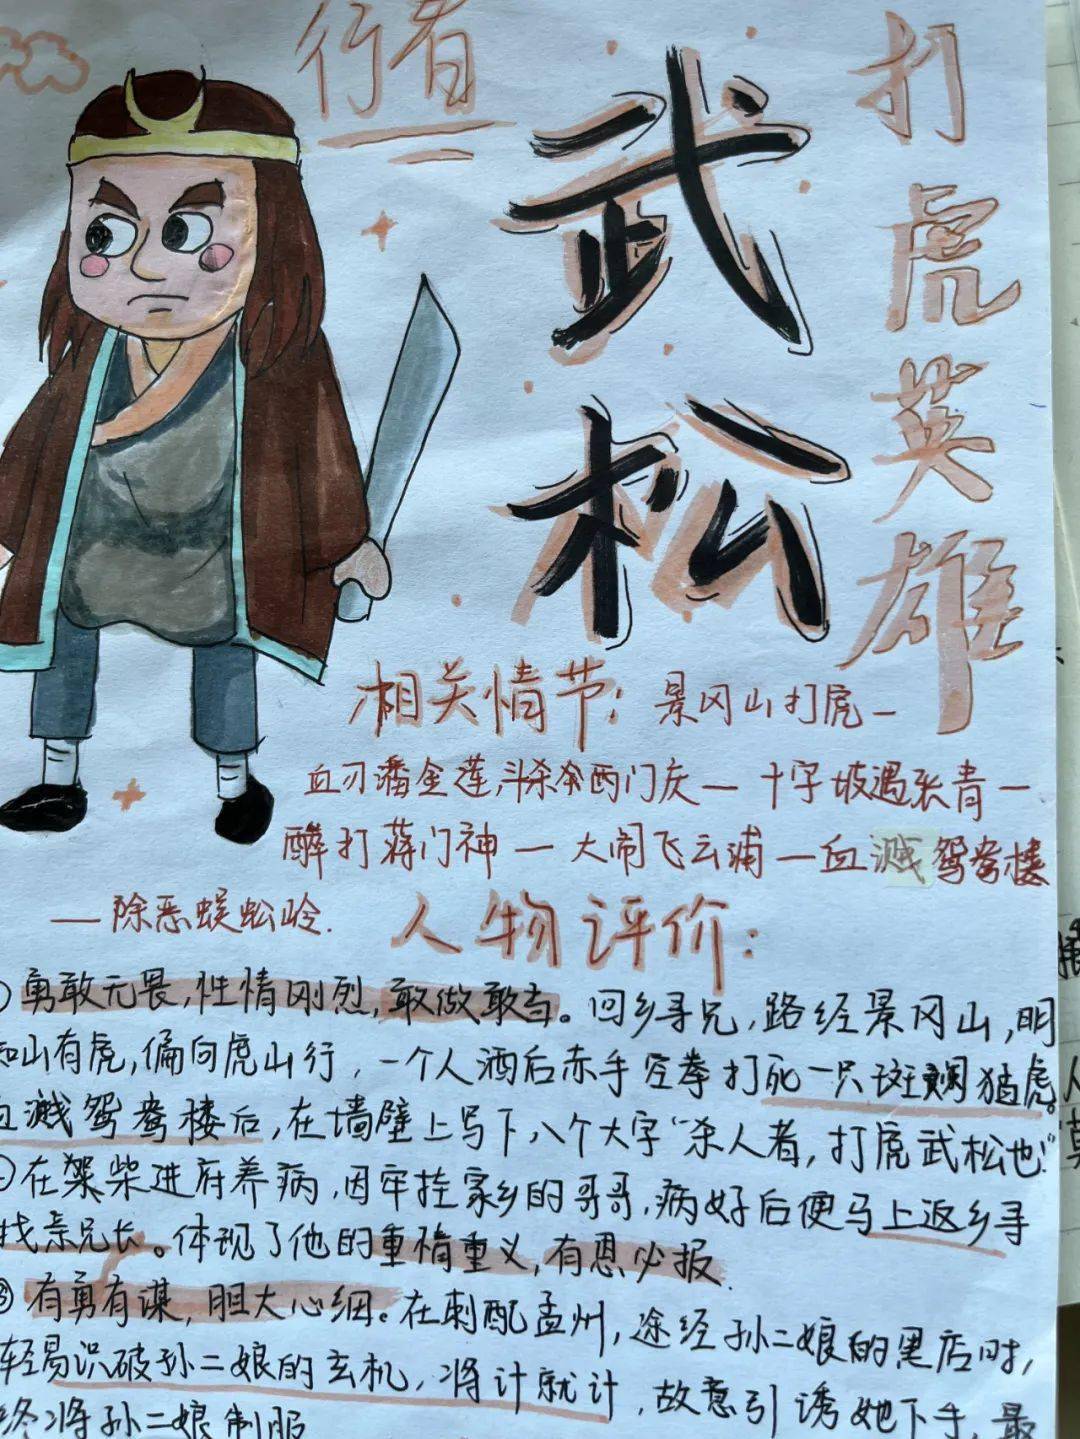 行者
武松
打虎英雄
相关情节：景冈山打虎—
血刃潘金莲，斗杀西门庆—十字坡遇张青—
醉打蒋门神—大闹飞云浦—血溅鸳鸯楼
—除恶蜈蚣岭.
人物评价：
勇敢无畏，性情刚烈，敢做敢当。回乡寻兄，路经景冈山，明
知山有虎，偏向虎山行，一个人酒后赤手空拳打死一只斑斓猛虎。
血溅鸳鸯楼后，在墙壁上写下八个大字“杀人者，打虎武松也！”
在柴进府养病，因牢挂家乡的哥哥，病好后便马上返乡寻
找亲兄长。体现了他的重情重义，有恩必报.
③有勇有谋，胆大心细。在刺配孟州，途经孙二娘的黑店时，
轻易识破孙二娘的玄机，将计就计，故意引诱她下手，最
终将孙二娘制服